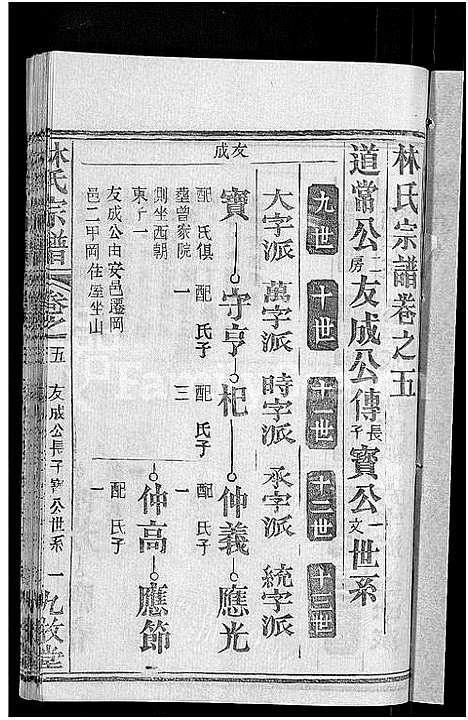 林氏宗譜卷之五
道常公二房友成公傳長子寶公一文世系
九世 十世 十一世 十二世 十三世
大字派 萬字派 時字派 承字派 統字派
友成
寶 守亨 杞 仲義 應光
配 氏俱 配 氏子 配 氏子 配 氏子
塟曾家院 一 三 一
側坐西朝
東子一 仲高 應節
友成公由安邑遷岡 配 氏子
邑二甲岡住屋坐山 一
林氏宗譜 卷之五 友成公長子寶公世系 一 九牧堂